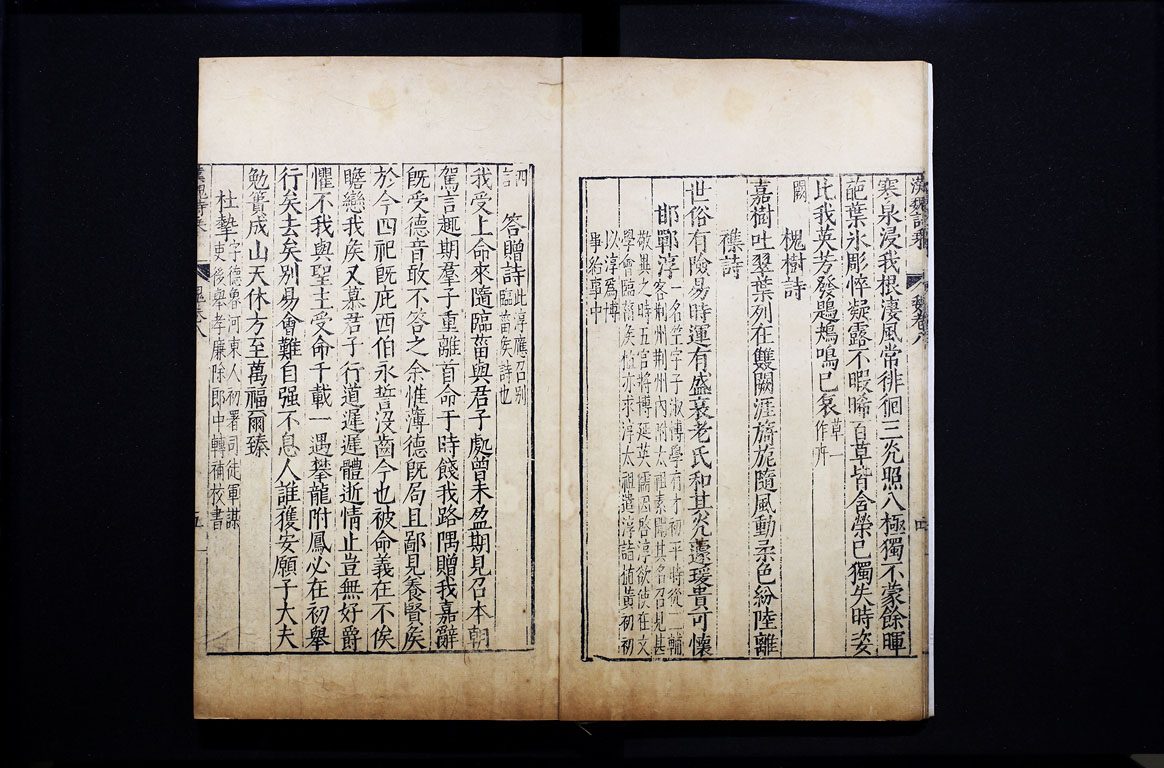 寒泉浸我根淒風常徘徊三光照八極獨不蒙餘暉
葩葉永彫悴凝露不暇晞百草皆含榮已獨失時姿
比我英芳發鶗鴂鳴已哀草一作卉
闕
槐樹詩
嘉樹吐翠葉列在雙闕涯旖旎隨風動柔色紛陸離
襍詩
世俗有險易時運有盛衰老氏和其光蘧瑗貴可懷
邯鄲淳一名竺字子淑博學有才初平時從二輔
客荆州荆州内附太祖素聞其名召見甚
敬異之時五官將博延英儒因啓淳欲使在文
學會臨菑矦植亦求淳太祖遣淳詣植黃初初
以淳爲博
士給事中
四言
答贈詩此淳應召别
臨菑矦詩也
我受上命來隨臨菑與君子處曾未盈期見召本朝
駕言趣期羣子重離首命于時餞我路隅贈我嘉辭
旣受德音敢不答之余惟薄德旣局且鄙見養賢矦
於今四祀旣庇西伯永誓没齒今也被命義在不俟
瞻戀我矦又慕君子行道遲遲體逝情止豈無好爵
懼不我與聖主受命千載一遇攀龍附鳳必在初舉
行矣去矣别易會難自强不息人誰獲安願子大夫
勉簣成山天休方至萬福爾臻
杜摯字德魯河東人初署司徒軍謀
吏後舉孝廉除郎中轉補校書